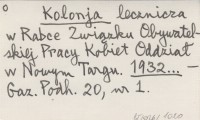 Kolonja lecznicza
w Rabce Związku Obywatel-
skiej Pracy Kobiet Oddział
w Nowym Targu. 1932... —
Gaz. Podh. 20, nr 1.